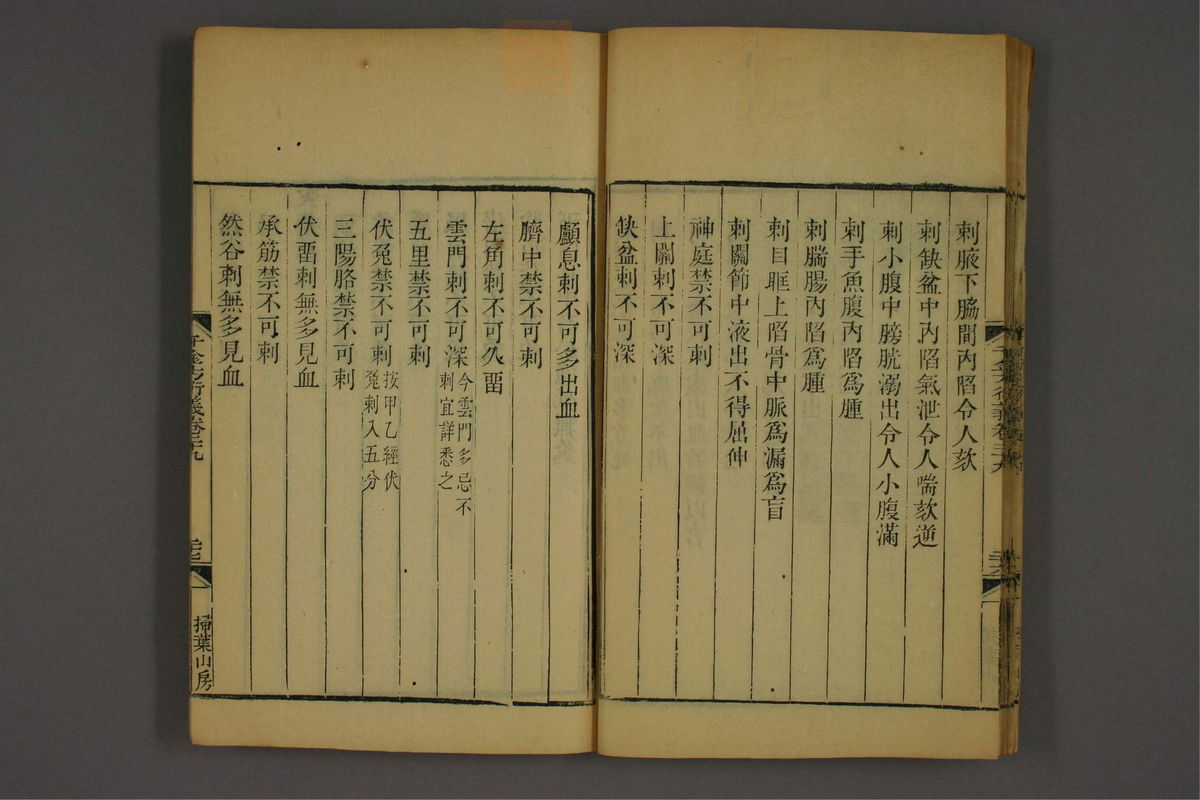 刺腋下脇間內陷令人欬
刺缺盆中內陷氣泄令人喘欬逆
刺小腹中膀胱溺出令人小腹滿
刺手魚腹內陷爲腫
刺腨腸內陷爲腫
刺目眶上陷骨中脈爲漏爲盲
刺關節中液出不得屈伸
神庭禁不可刺
上關刺不可深
缺盆刺不可深
顱息刺不可多出血
臍中禁不可刺
左角刺不可久畱
雲門刺不可深今雲門多忌不
刺宜詳悉之
五里禁不可刺
伏兔禁不可刺按甲乙經伏
兔刺入五分
三陽胳禁不可刺
伏畱刺無多見血
承筋禁不可刺
然谷刺無多見血
千金方衍義卷二十九
掃葉山房